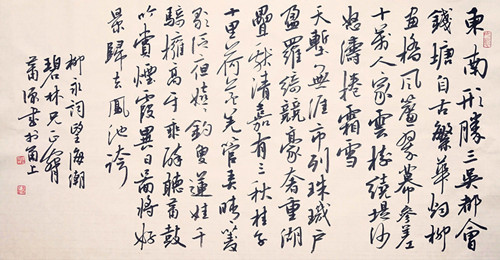 東南形勝三吳都會
錢塘自古繁華烟柳
畫橋風簾翠幕參差
十萬人家雲樹繞堤沙
怒濤捲霜雪
天塹無涯市列珠璣戶
盈羅綺競豪奢重湖
疊巘清嘉有三秋桂子
十里荷花羌管弄晴菱
歌泛夜嬉嬉釣叟蓮娃千
騎擁高牙乘醉聽簫鼓
吟賞煙霞異日圖將好
景歸去鳳池誇
柳永詞望海潮
碧林兄正
源書於上